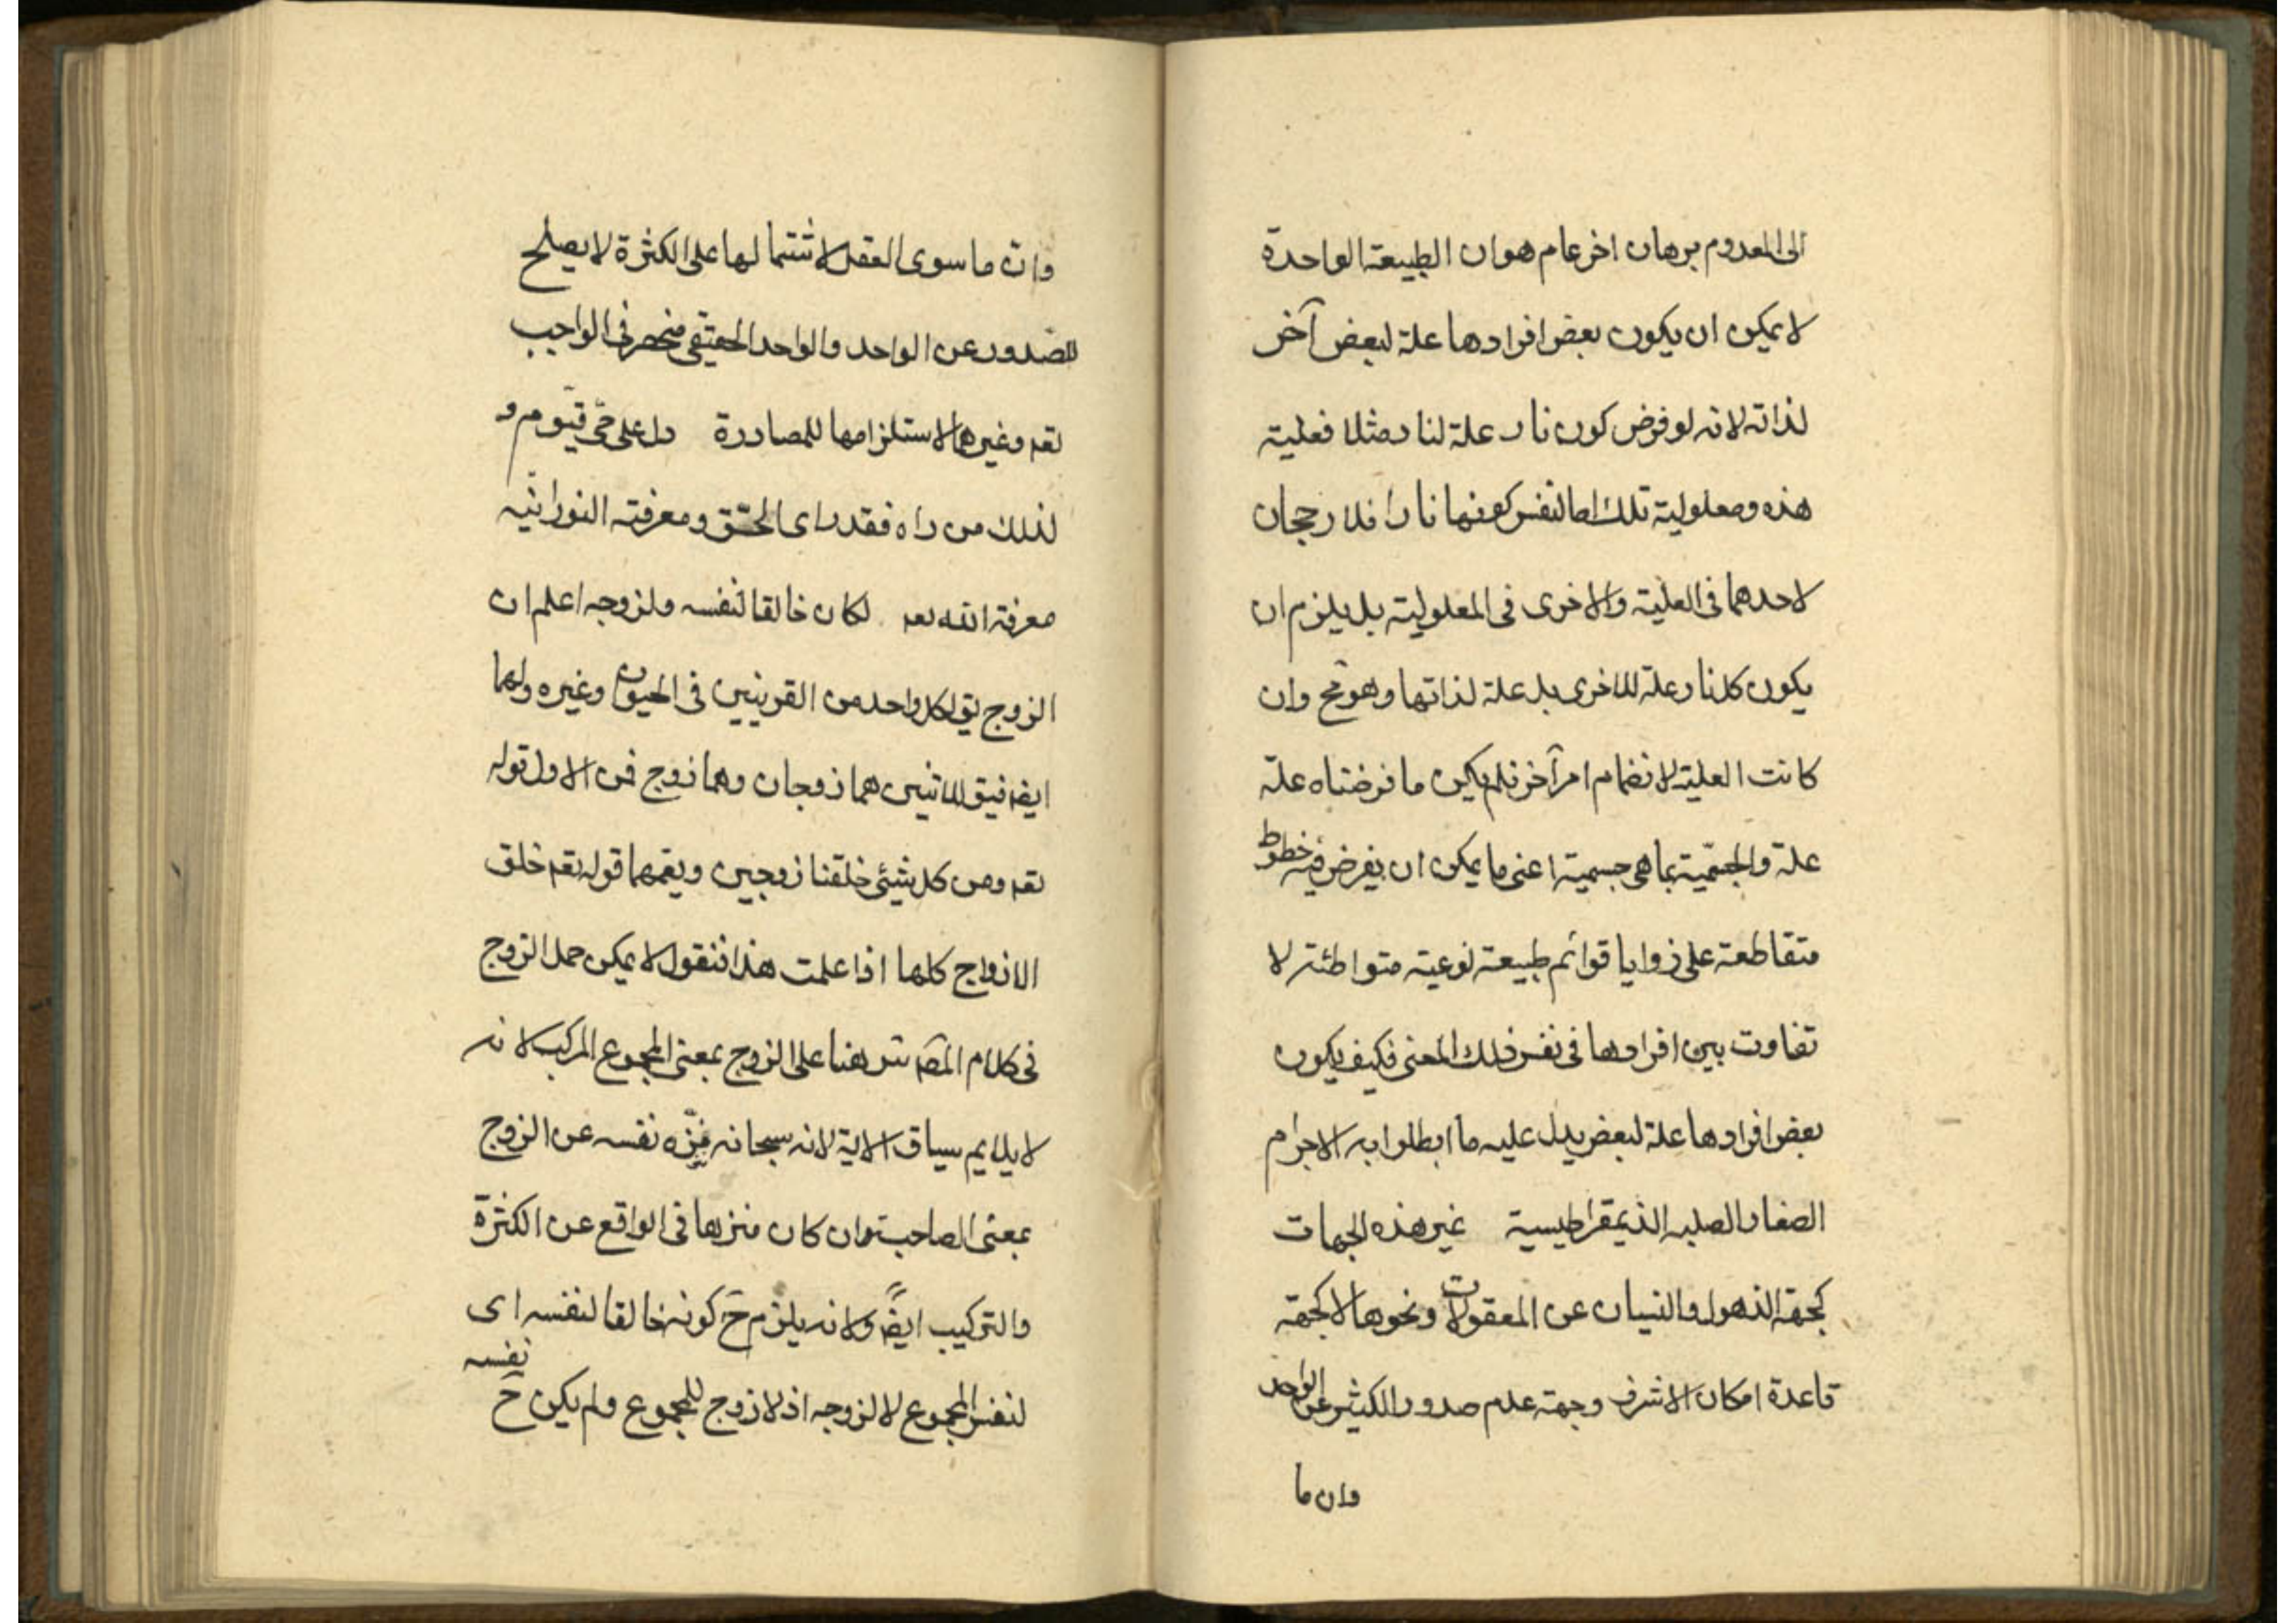 الى المعدوم برهان اخر عام هو ان الطبيعة الواحدة
لا يمكن ان يكون بعض افرادها علة لبعض آخر
لذاته لانه لو فرض كون نار علة لنار مثلا فعلية
هذه ومعلولية تلك اما لنفس كونها نارا فلا رجحان
لاحدهما فى العلية والاخرى فى المعلولية بل يلزم ان
يكون كل نار علة للاخرى بل علة لذاتها وهو مح وان
كانت العلية لانضمام امر آخر فلم يكن ما فرضناه علة
علة والجسمية بما هى جسمية اعنى ما يمكن ان يفرض فيه خطوط
متقاطعة على زوايا قوائم طبيعة نوعية متواطئة لا
تفاوت بين افرادها فى نفس ذلك المعنى فكيف يكون
بعض افرادها علة لبعض يدل عليه ما ابطلوا به الاجرام
الصغار الصلبه الذيمقراطيسية غير هذه الجهات
كجهة الذهول والنسيان عن المعقولات ونحوها لا كجهة
قاعدة امكان الاشرف وجهة عدم صدور الكثير عن الواحد
وان ما
وان ما سوى العقل لاشتمالها على الكثرة لا يصلح
للصدور عن الواحد والواحد الحقيقى منحصر فى الواجب
تعه وغيرها لاستلزامها للمصادرة دل على حى قيوم و
لذلك من راه فقد راى الحق ومعرفته النورانيه
معرفة الله تعه لكان خالقا لنفسه ولزوجه اعلم ان
الزوج يق لكل واحد من القرينين فى الحيوان وغيره ولهما
ايضه فيق للاثنين هما زوجان وهما زوج فمن الاول قوله
تعه ومن كل شيئى خلقنا زوجين ويعمهما قوله تعه خلق
الازواج كلها اذا علمت هذا فنقول لا يمكن حمل الزوج
فى كلام المصه هنا على الزوج بمعنى المجموع المركب لانه
لا يلايم سياق الاية لانه سبحانه نزه نفسه عن الزوج
بمعنى الصاحبة وان كان منزها فى الواقع عن الكثرة
والتركيب ايضا ولانه يلزم ح كونه خالقا لنفسه اى
لنفس المجموع لا لزوجه اذ لا زوج للمجموع ولم يكن ح نفسه